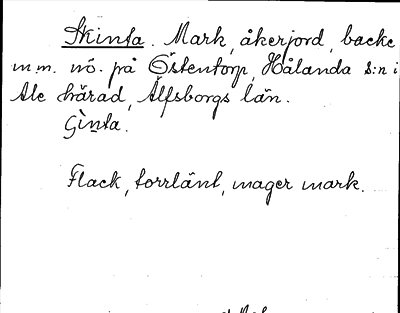 Skinta. Mark, åkerjord, backe
m.m. nö. på Östentorp, Hålanda s:n i
Ale härad, Älfsborgs län.
Gìnta.
Flack, torrlänt, mager mark.